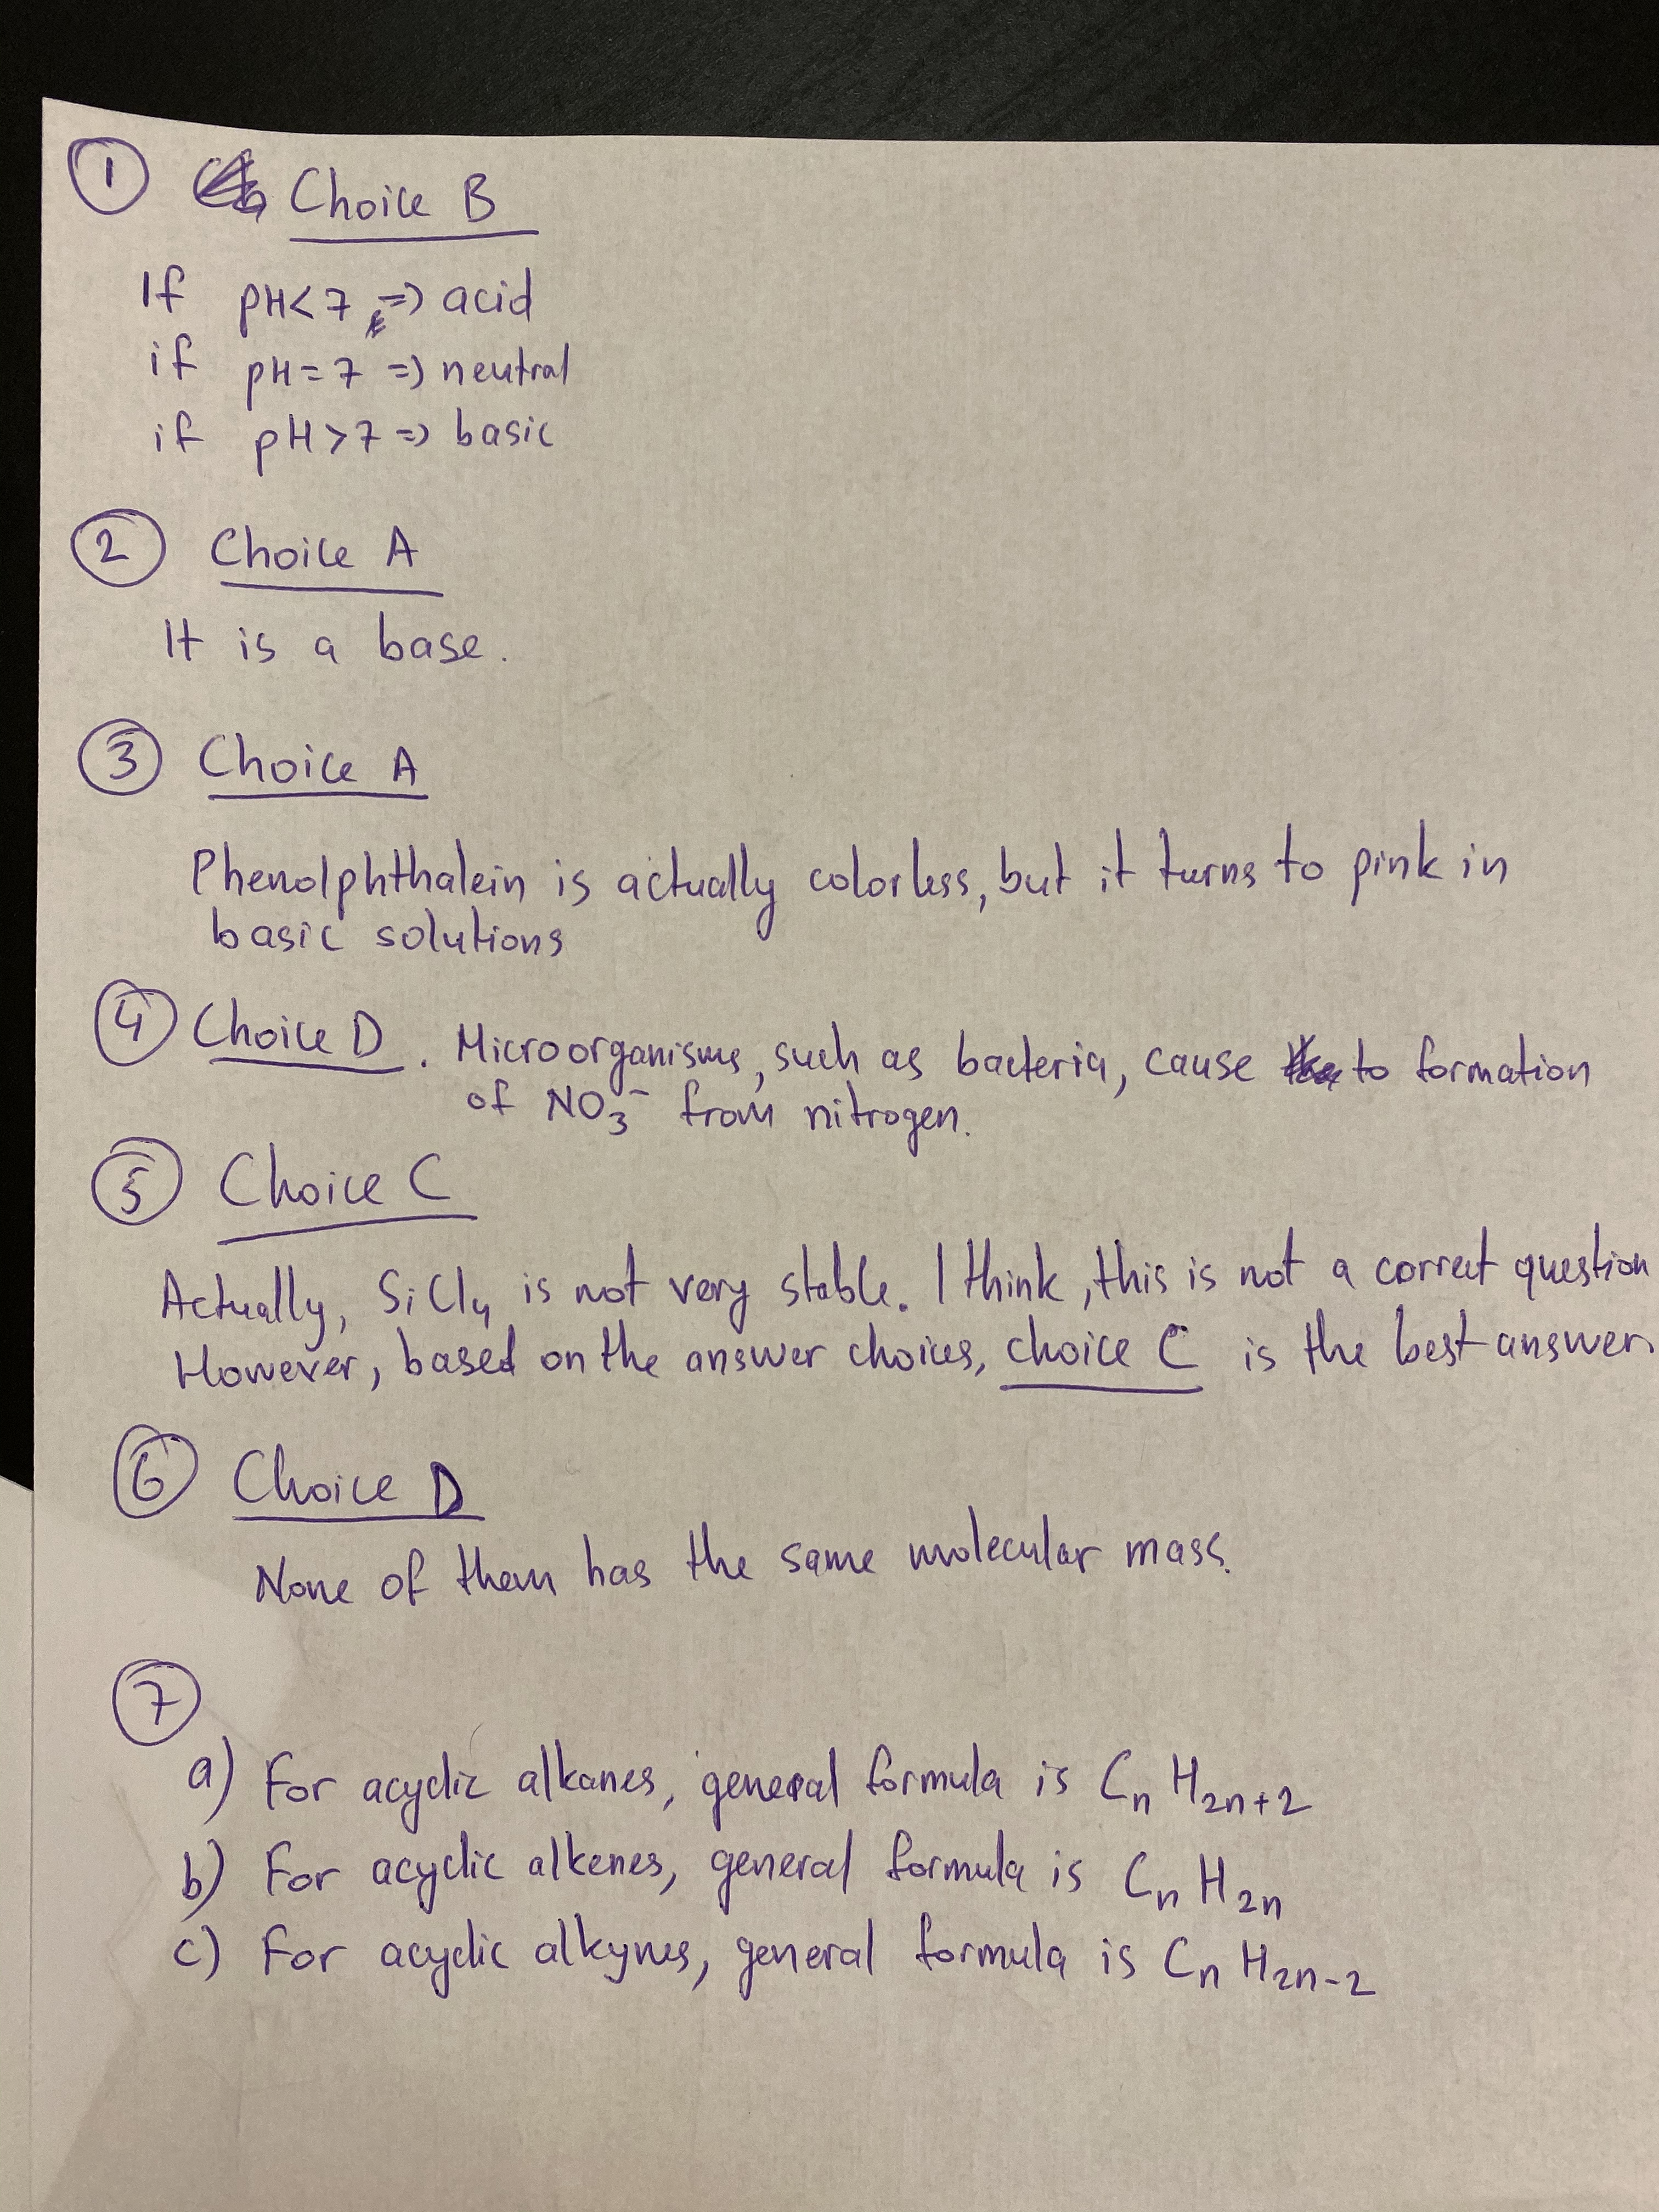 1 Choice B
If pH<7 => acid
if pH=7 => neutral
if pH>7 => basic
2 Choice A
It is a base.
3 Choice A
Phenolphthalein is actually colorless, but it turns to pink in
basic solutions
4 Choice D. Microorganisms, such as bacteria, cause to formation
of NO₃⁻ from nitrogen.
5 Choice C
Actually, SiCl₄ is not very stable. I think, this is not a correct question
However, based on the answer choices, choice C is the best answer.
6 Choice D
None of them has the same molecular mass.
7
a) For acyclic alkanes, general formula is CₙH₂ₙ₊₂
b) For acyclic alkenes, general formula is CₙH₂ₙ
c) For acyclic alkynes, general formula is CₙH₂ₙ₋₂